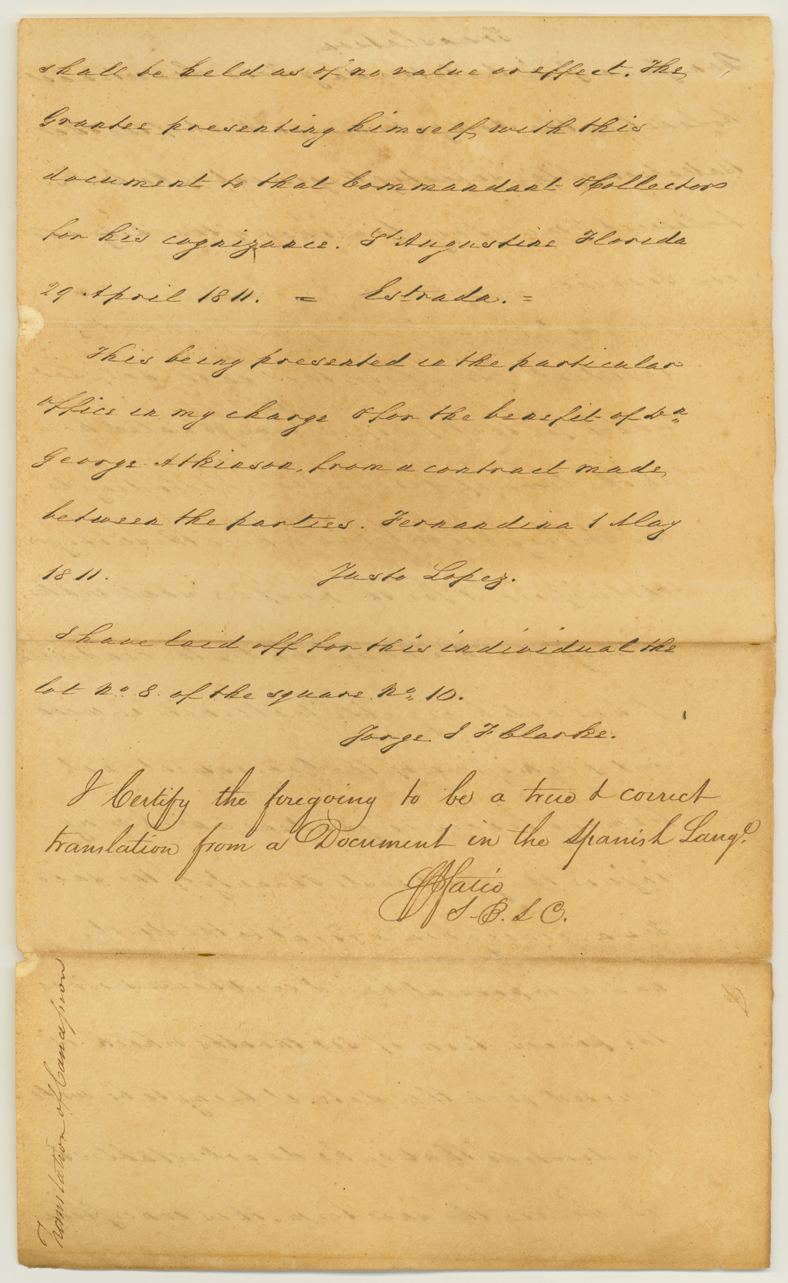 shall be held as of no value or effect. The
Grantee presenting himself with this
document to that Commandant & Collector
for his cognizance. St Augustine Florida
29 April 1811. = Estrada. =
This being presented in the particular
office in my charge & for the benefit of Dn
George Atkinson, from a contract made
between the parties. Fernandina 1 May
1811. Justo Lopez.
I have laid off for this individual the
lot No 8. of the square No 10.
Jorge J F Clarke.
I Certify the foregoing to be a true & correct
translation from a Document in the Spanish Lange.
S. B. L C.
Translation of